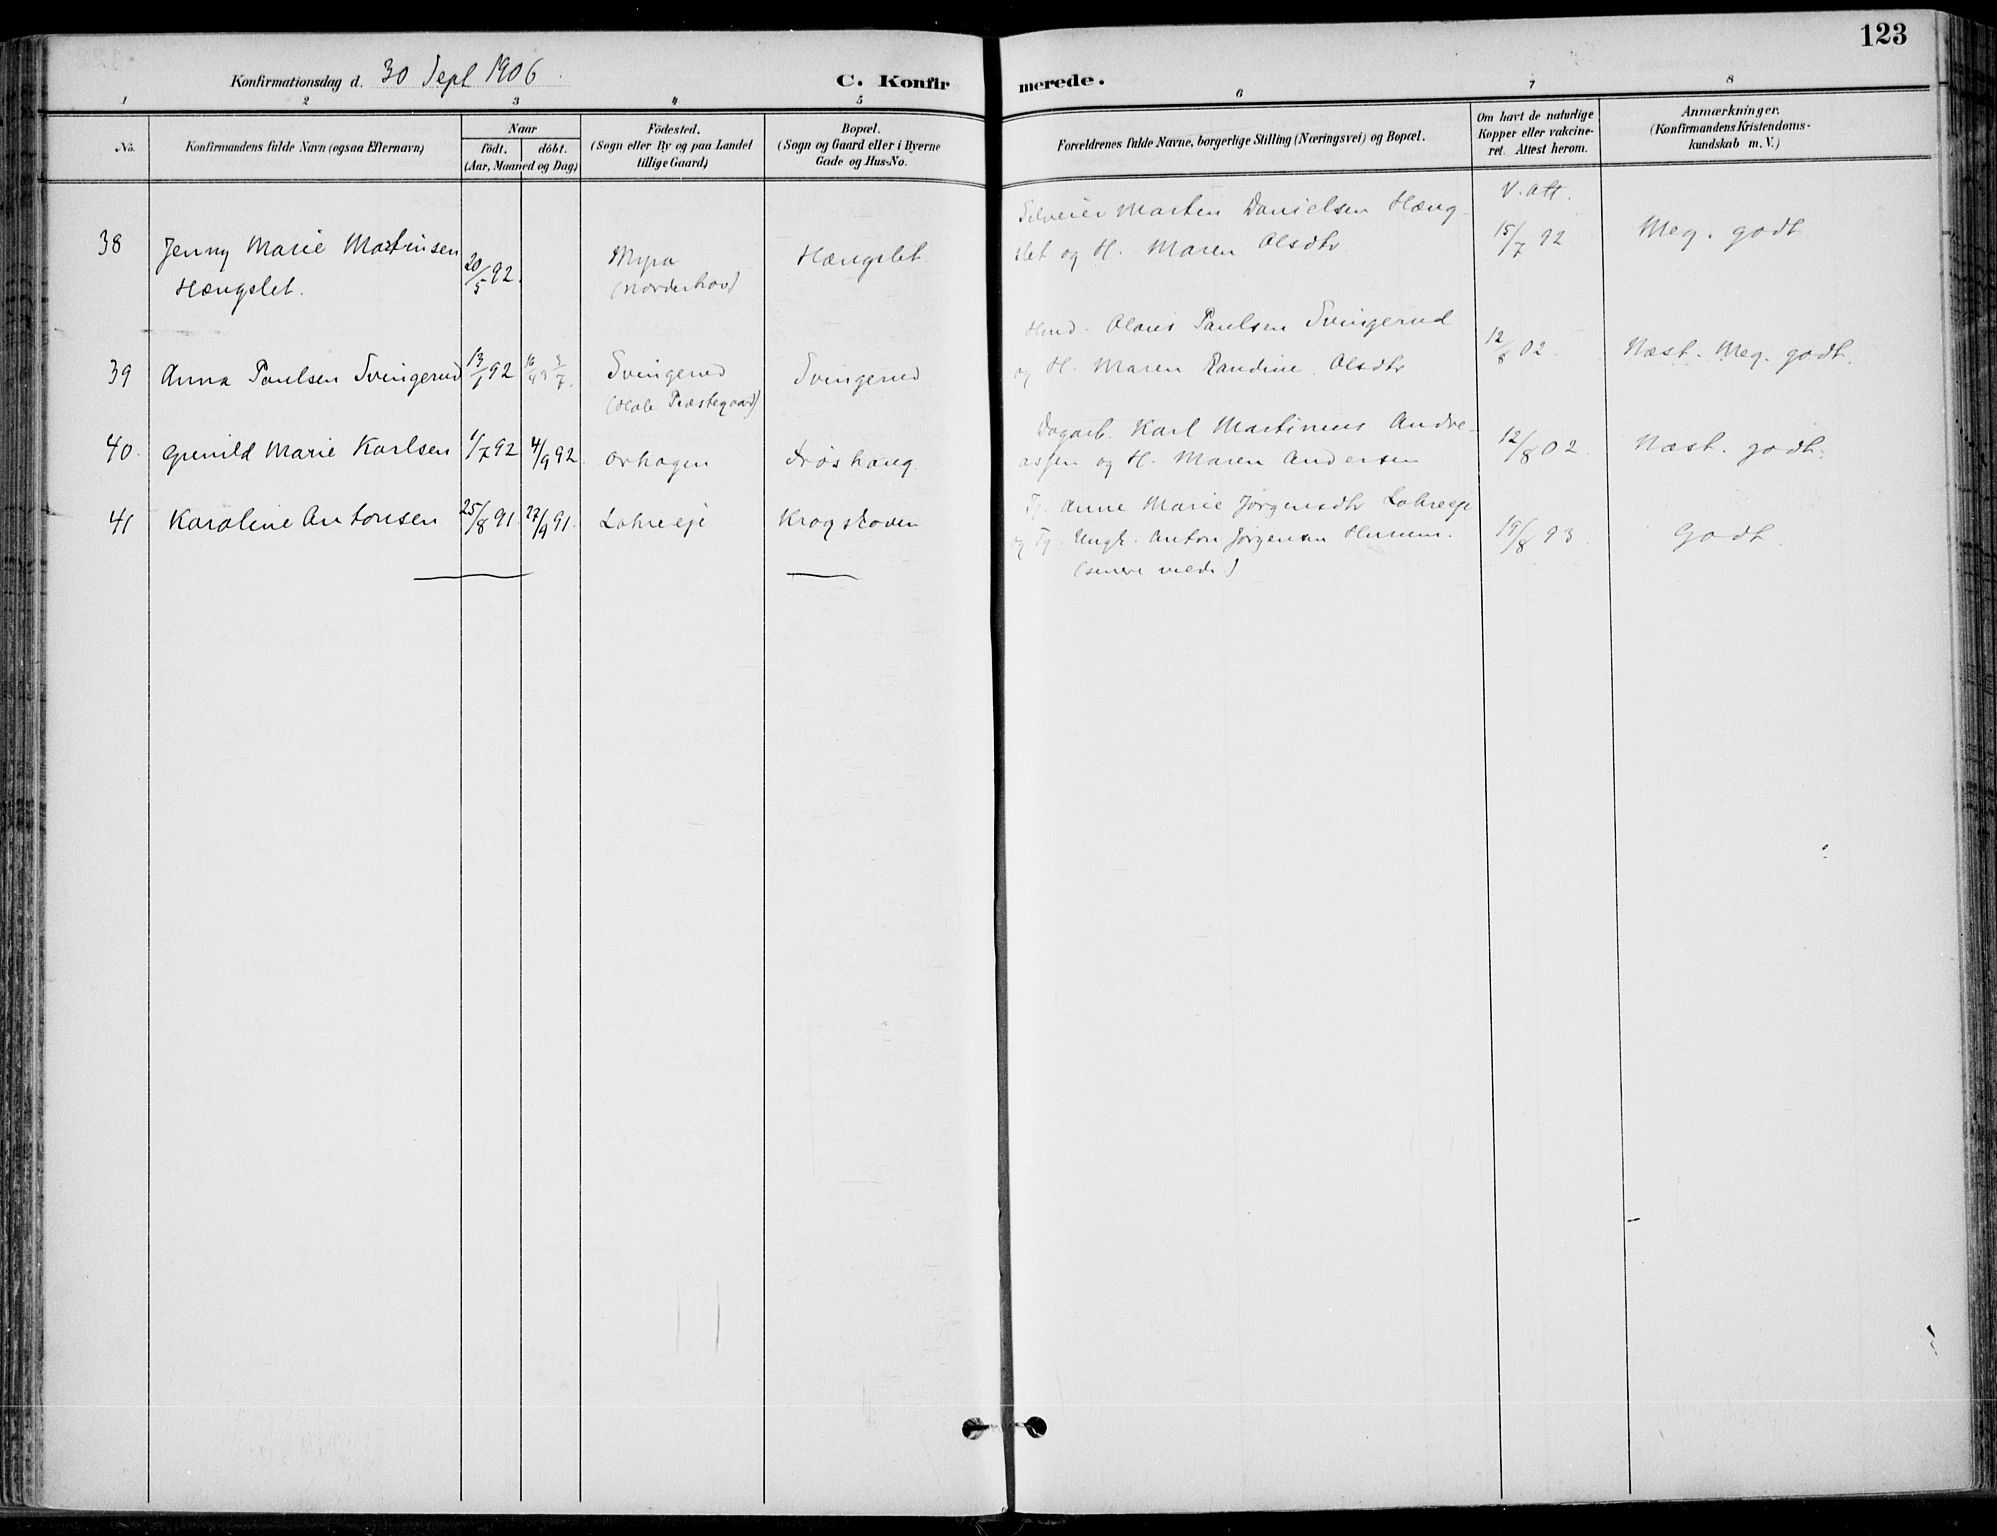 123
Konfirmationsdag d. 30 Sept 1906
C. Konfirmerede.
1 2 3 4 5 6 7 8
No.
Konfirmandens fulde Navn (ogsaa Efternavn)
Naar
født. døbt.
(Aar, Maaned og Dag)
Fødested.
(Sogn eller By og paa Landet
tillige Gaard)
Bopæl.
(Sogn og Gaard eller i Byerne
Gade og Hus-No.
Forældrenes fulde Navne, borgerlige Stilling (Næringsvei) og Bopæl.
Om havt de naturlige
Kopper eller vakcine-
ret. Attest herom.
Anmærkninger.
(Konfirmandens Kristendoms-
kundskab m. V.)
38 Jenny Marie Martinsen
Hængslet.
20/5 92.
Myra
(Norderhov)
Hængslet.
Selveier Martin Danielsen Hæng-
slet og H. Maren Olsdtr
V. att.
15/7 92
Meg. godt
39 Anna Paulsen Svingerud 13/1 92 3/7.
Svingerud
(Hole Præstegaard)
Svingerud
Olaus Paulsen Svingerud
og H. Maren Randine Olsdtr
12/8 02.
Næst. Meg. godt.
40. Gunild Marie Karlsen 1/7 92 4/9 92.
Orhagen
Frøshaug.
Dagarb. Karl Martinius Andre-
assen og H. Maren Andersen
12/8 02.
Næst. godt.
41 Karoline Antonsen 25/8 91 27/9 91.
Lohreeje
Krogskoven
Tj. Anne Marie Jørgensdtr Lohreeje
og Tj. Ungk. Anton Jørgensen
19/8 93.
Godt